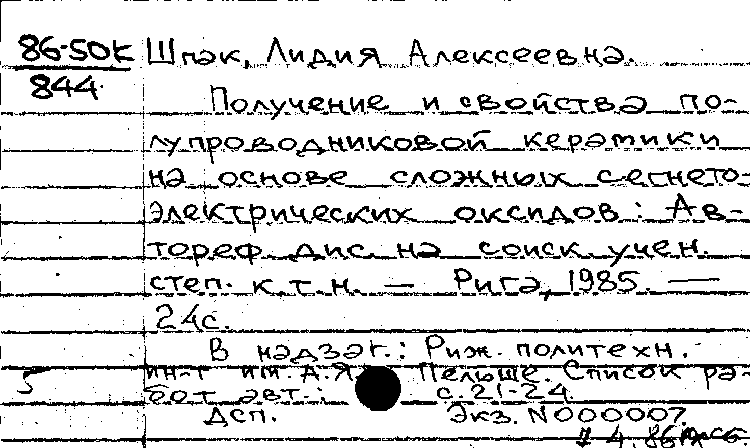 86-50к Шпак, Лидия Алексеевна.
844
Получение и свойства по-
лупроводниковой керамики
на основе сложных сегнето-
электрических оксидов: Ав-
тореф. дис. на соиск. учен.
степ. к.т.н. — Рига, 1985. —
24с.
В надзаг.: Риж. политехн.
5 ин-т им. А.Я. Пельше. Список ра-
бот авт.: с. 21-24
Дсп. Экз. N000007
4.86